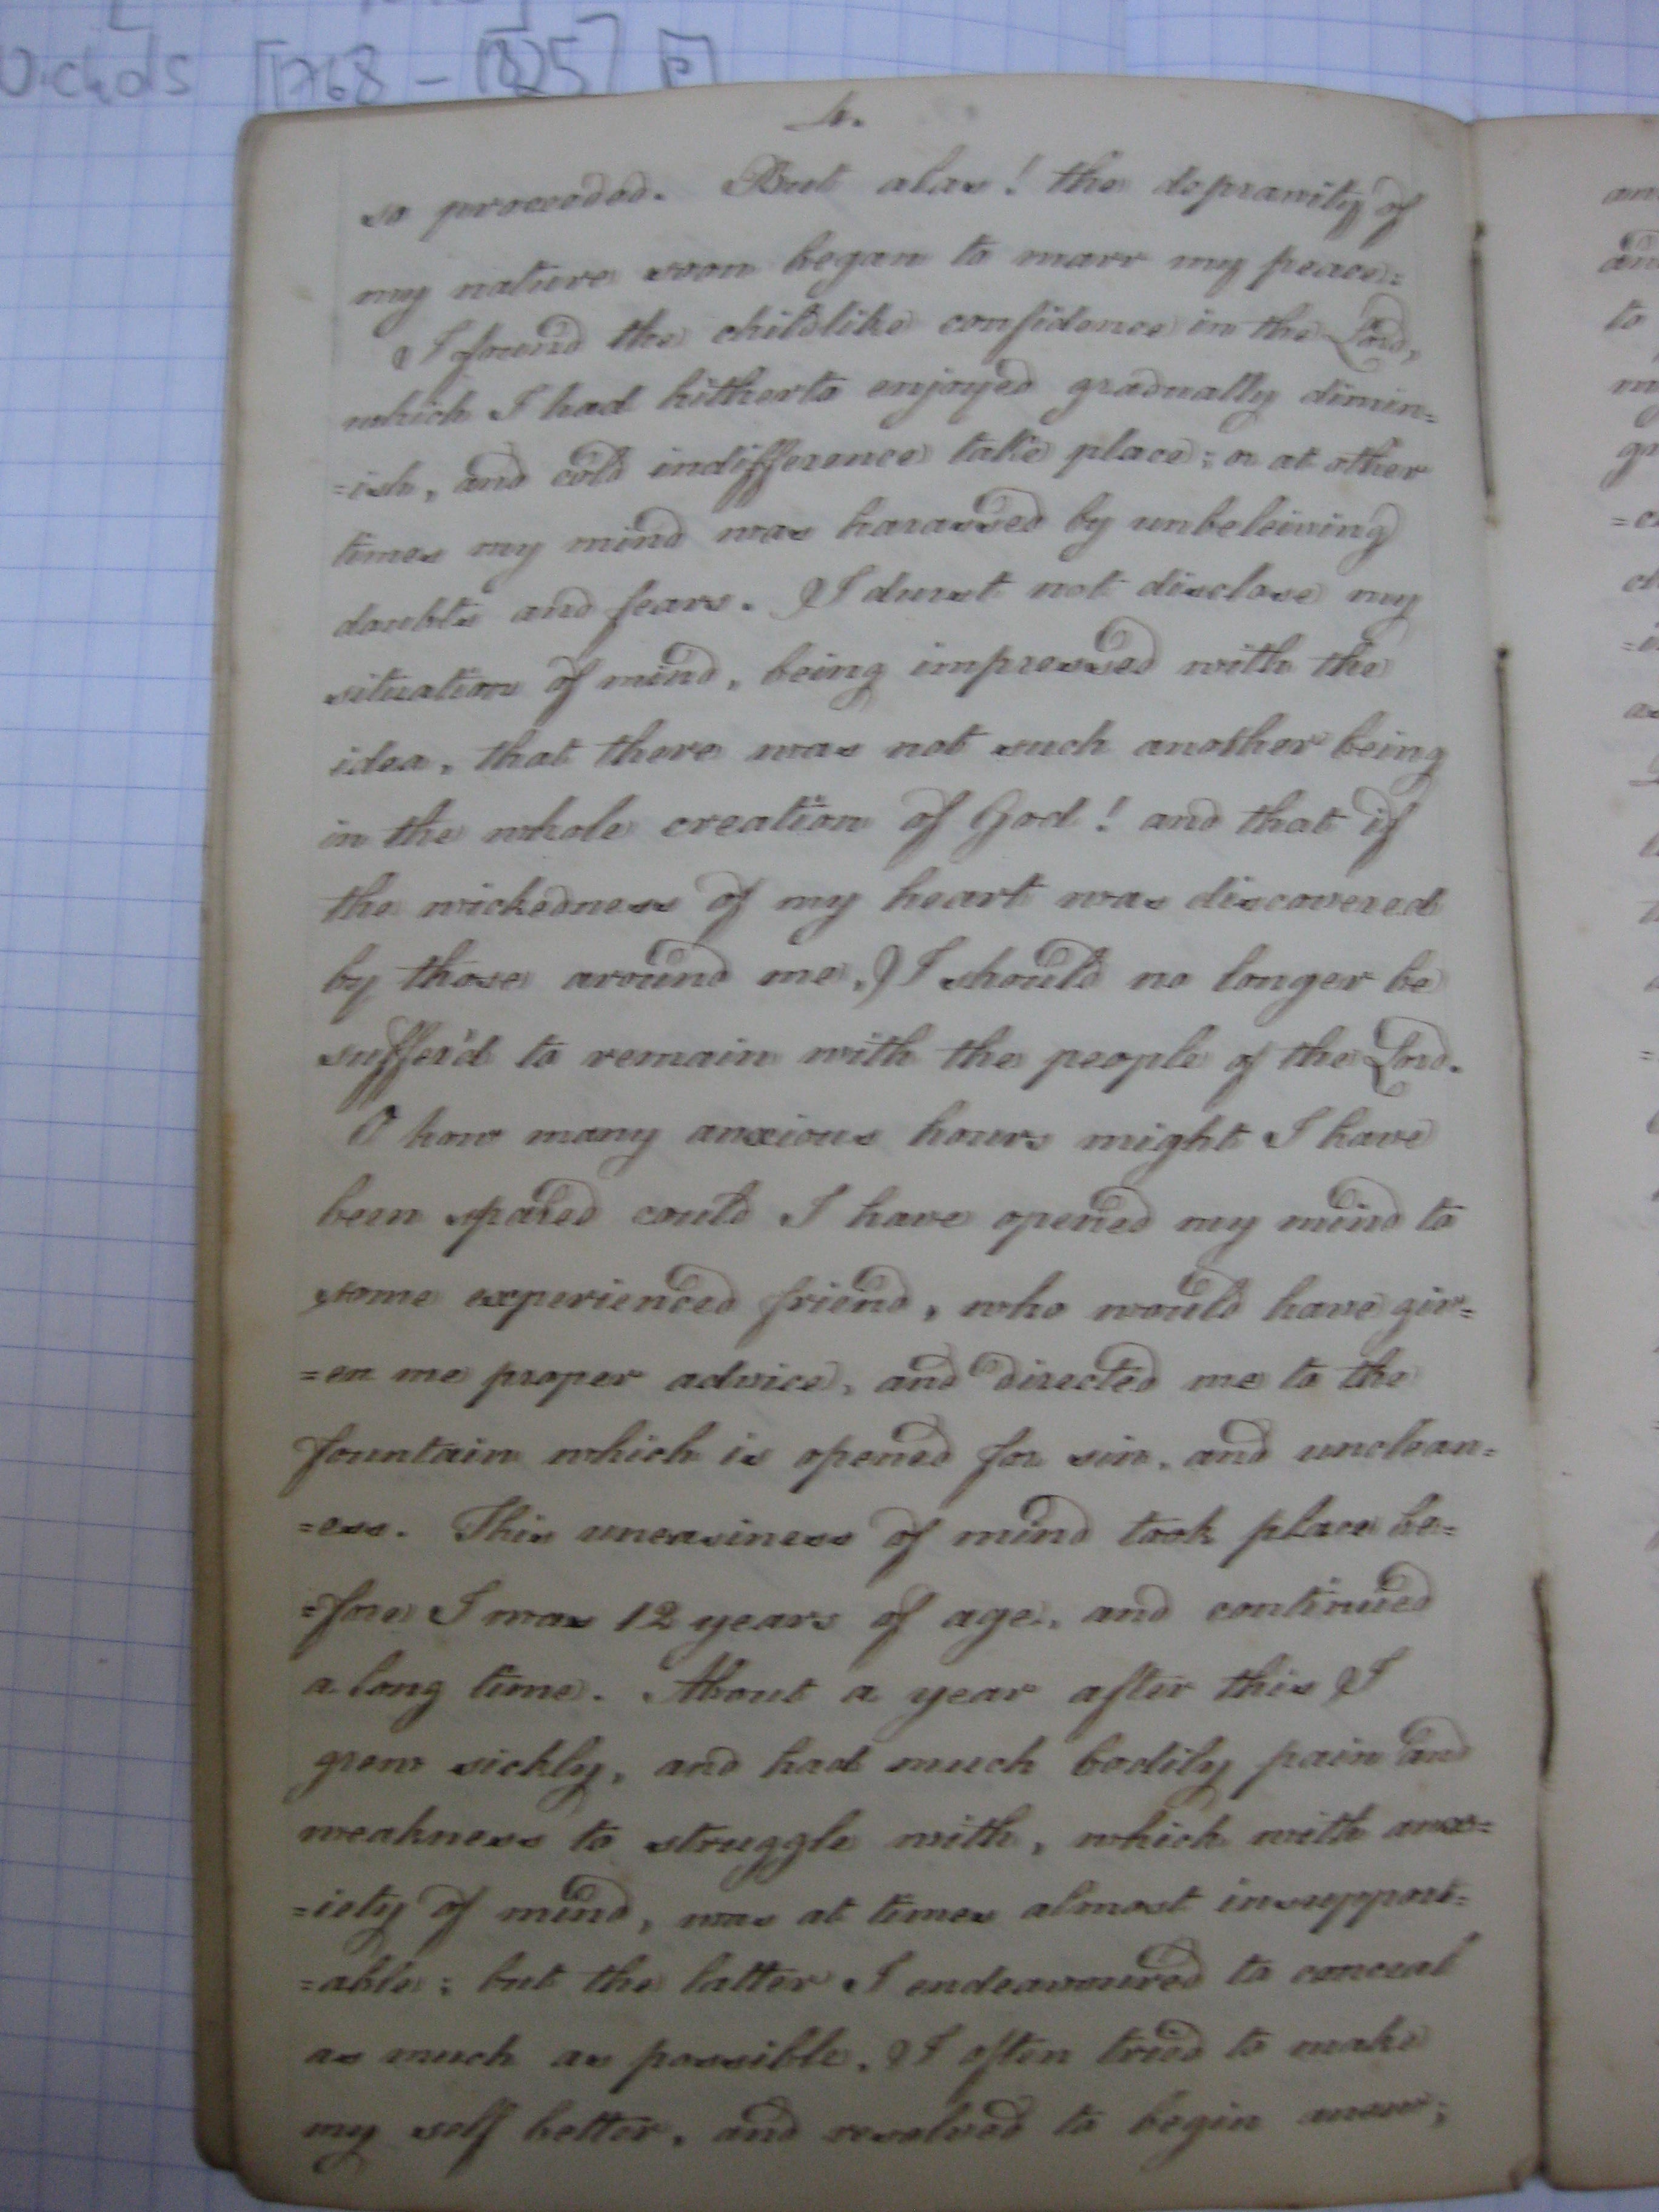 Vichds [1768 - 1825] [P]
4.
so proceeded. But alas! the depravity of
my nature soon began to marr my peace:
I found the childlike confidence in the Lord,
which I had hitherto enjoyed gradually dimin=
=ish, and cold indifference take place; or at other
times my mind was harassed by unbeleiving
doubts and fears. I durst not disclose my
situation of mind, being impressed with the
idea, that there was not such another being
in the whole creation of God! and that if
the wickedness of my heart was discovered
by those around me, I should no longer be
suffer'd to remain with the people of the Lord.
O how many anxious hours might I have
been spared could I have opened my mind to
some experienced friend, who would have giv=
=en me proper advice, and directed me to the
fountain which is opened for sin, and unclean=
=ess. This uneasiness of mind took place be=
=fore I was 12 years of age, and continued
a long time. About a year after this I
grew sickly, and had much bodily pain and
weakness to struggle with, which with anx=
=iety of mind, was at times almost insupport=
=able; but the latter I endeavoured to conceal
as much as possible. I often tried to make
my self better, and resolved to begin anew;
an
an
to
m
gr